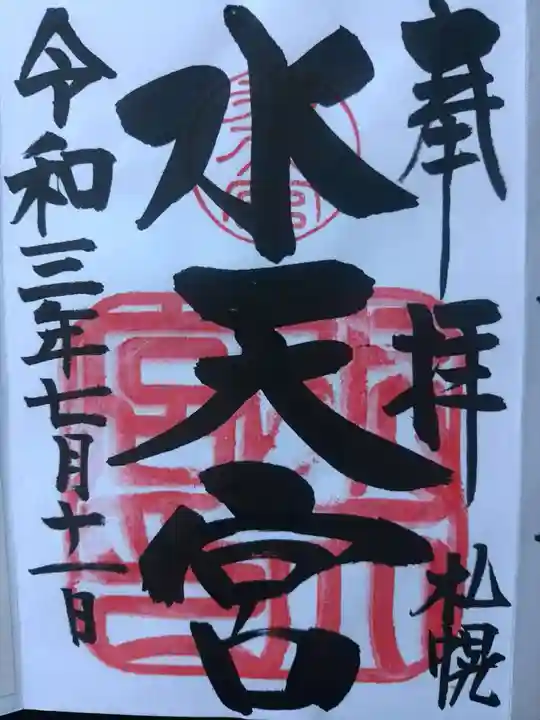 奉拝
札幌
水天宮
令和三年七月十一日